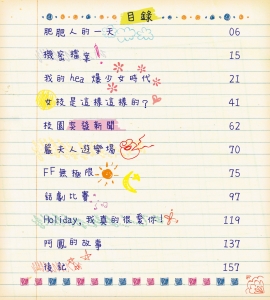 目錄
肥肥人的一天 06
機密檔案! 15
我的hea爆少女時代 21
女校是這樣這樣的? 41
校園突發新聞 62
嚴夫人遊學場 70
FF無極限 75
話劇比賽 97
Holiday, 我真的很愛你! 119
阿鳳的故事 137
後記 157